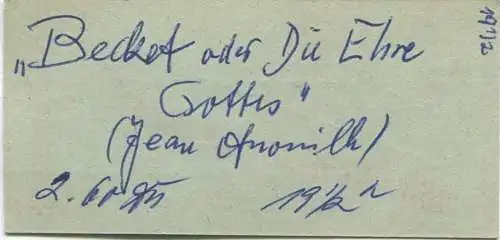 „Becket oder Die Ehre
Gottes"
(Jean Anouilh)
2. 19½ h
19 1/2